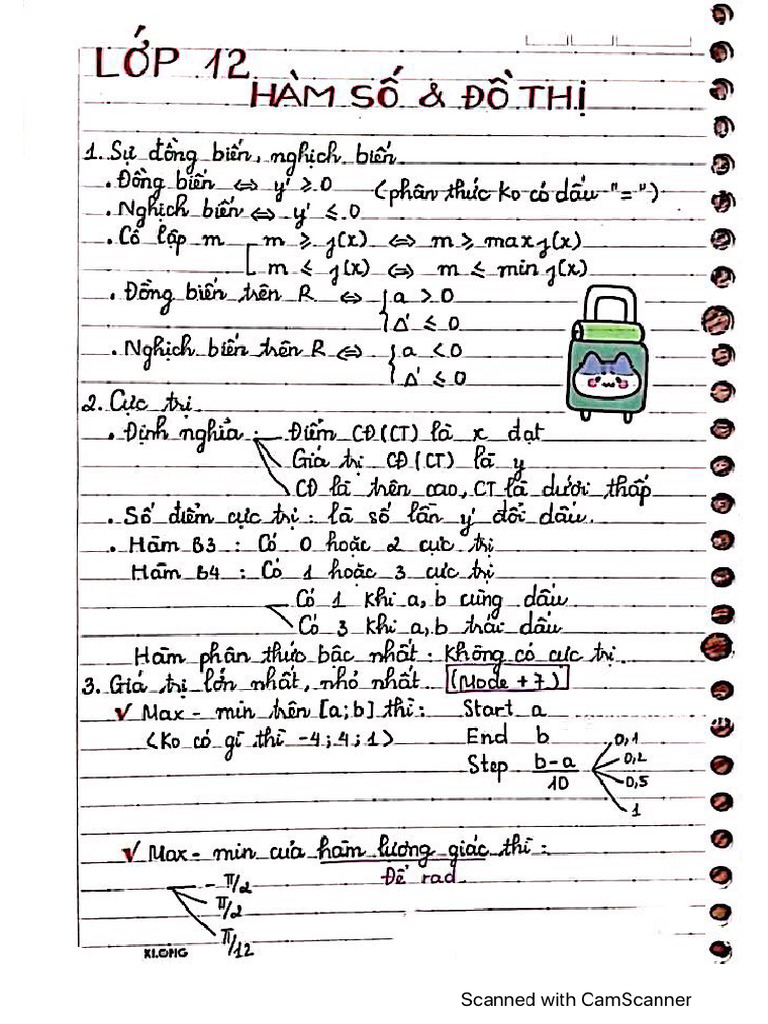 LỚP 12
HÀM SỐ & ĐỒ THỊ
1. Sự đồng biến, nghịch biến
. Đồng biến ⇔ y' ≥ 0 (phân thức ko có dấu "=")
. Nghịch biến ⇔ y' ≤ 0
. Cô lập m [ m ≥ g(x) ⇔ m ≥ max g(x)
m ≤ g(x) ⇔ m ≤ min g(x)
. Đồng biến trên R ⇔ { a > 0
Δ' ≤ 0
. Nghịch biến trên R ⇔ { a < 0
Δ' ≤ 0
2. Cực trị
. Định nghĩa : Điểm CĐ(CT) là x đạt
Giá trị CĐ(CT) là y
CĐ là trên cao, CT là dưới thấp
. Số điểm cực trị : là số lần y' đổi dấu.
. Hàm B3 : Có 0 hoặc 2 cực trị
Hàm B4 : Có 1 hoặc 3 cực trị
Có 1 khi a, b cùng dấu
Có 3 khi a, b trái dấu
Hàm phân thức bậc nhất : không có cực trị
3. Giá trị lớn nhất, nhỏ nhất (Mode + 7)
✓ Max - min trên [a; b] thì : Start a
(Ko có gì thì -4; 4; 1) End b
Step b-a/10 0,1
0,2
0,5
1
✓ Max - min của hàm lượng giác thì :
Để rad
- π/2
π/2
π/12
KLONG
Scanned with CamScanner